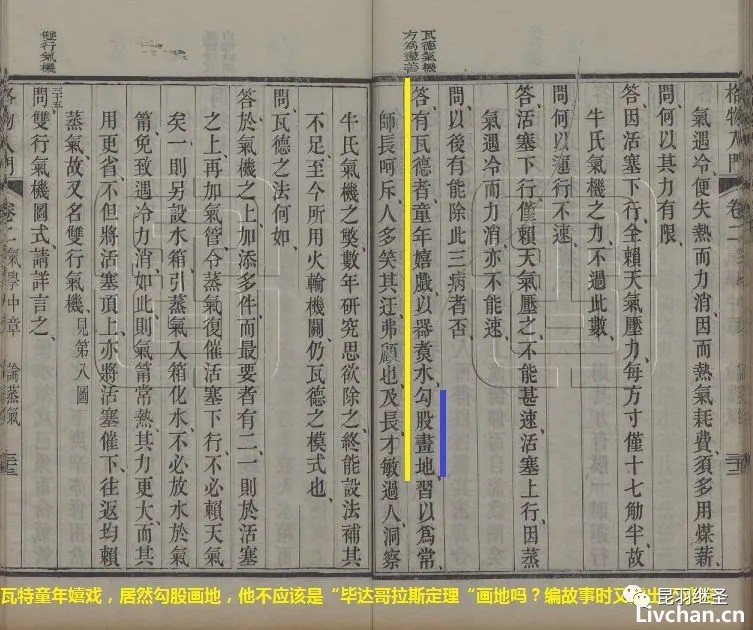 格物入門 卷二
氣遇冷便失熱而力消因而熱氣耗費須多用煤薪
問何以其力有限
答因活塞下行全賴天氣壓力每方寸僅十七觔半故
牛氏氣機之力不過此數
問何以運行不速
答活塞下行僅賴天氣壓之、不能甚速活塞上行因蒸
氣遇冷而力消亦不能速
問以後有能除此三病者否
瓦德氣機
方爲盡善
答有瓦德者童年嬉戲以器煮水勾股畫地習以爲常
師長呵斥人多笑其迂弗顧也及長才敏過人洞察
牛氏氣機之獘數年研究思欲除之終能設法補其
不足至今所用火輪機關仍瓦德之模式也
問瓦德之法何如
答於氣機之上加添多件而最要者有二一則於活塞
之上再加氣管令蒸氣復催活塞下行不必賴天氣
矣一則另設水箱引蒸氣入箱化水不必放水於氣
筩免致遇冷力消如此則氣筩常熱其力更大而其
用更省不但將活塞頂上亦將活塞催下往返均賴
蒸氣故又名雙行氣機見第八圖
雙行氣機
問雙行氣機圖式請詳言之
格物入門 卷二 氣學中章 論蒸氣
瓦特童年嬉戏，居然勾股画地，他不应该是“毕达哥拉斯定理“画地吗？编故事时又
昆羽继圣
Livchan.cn